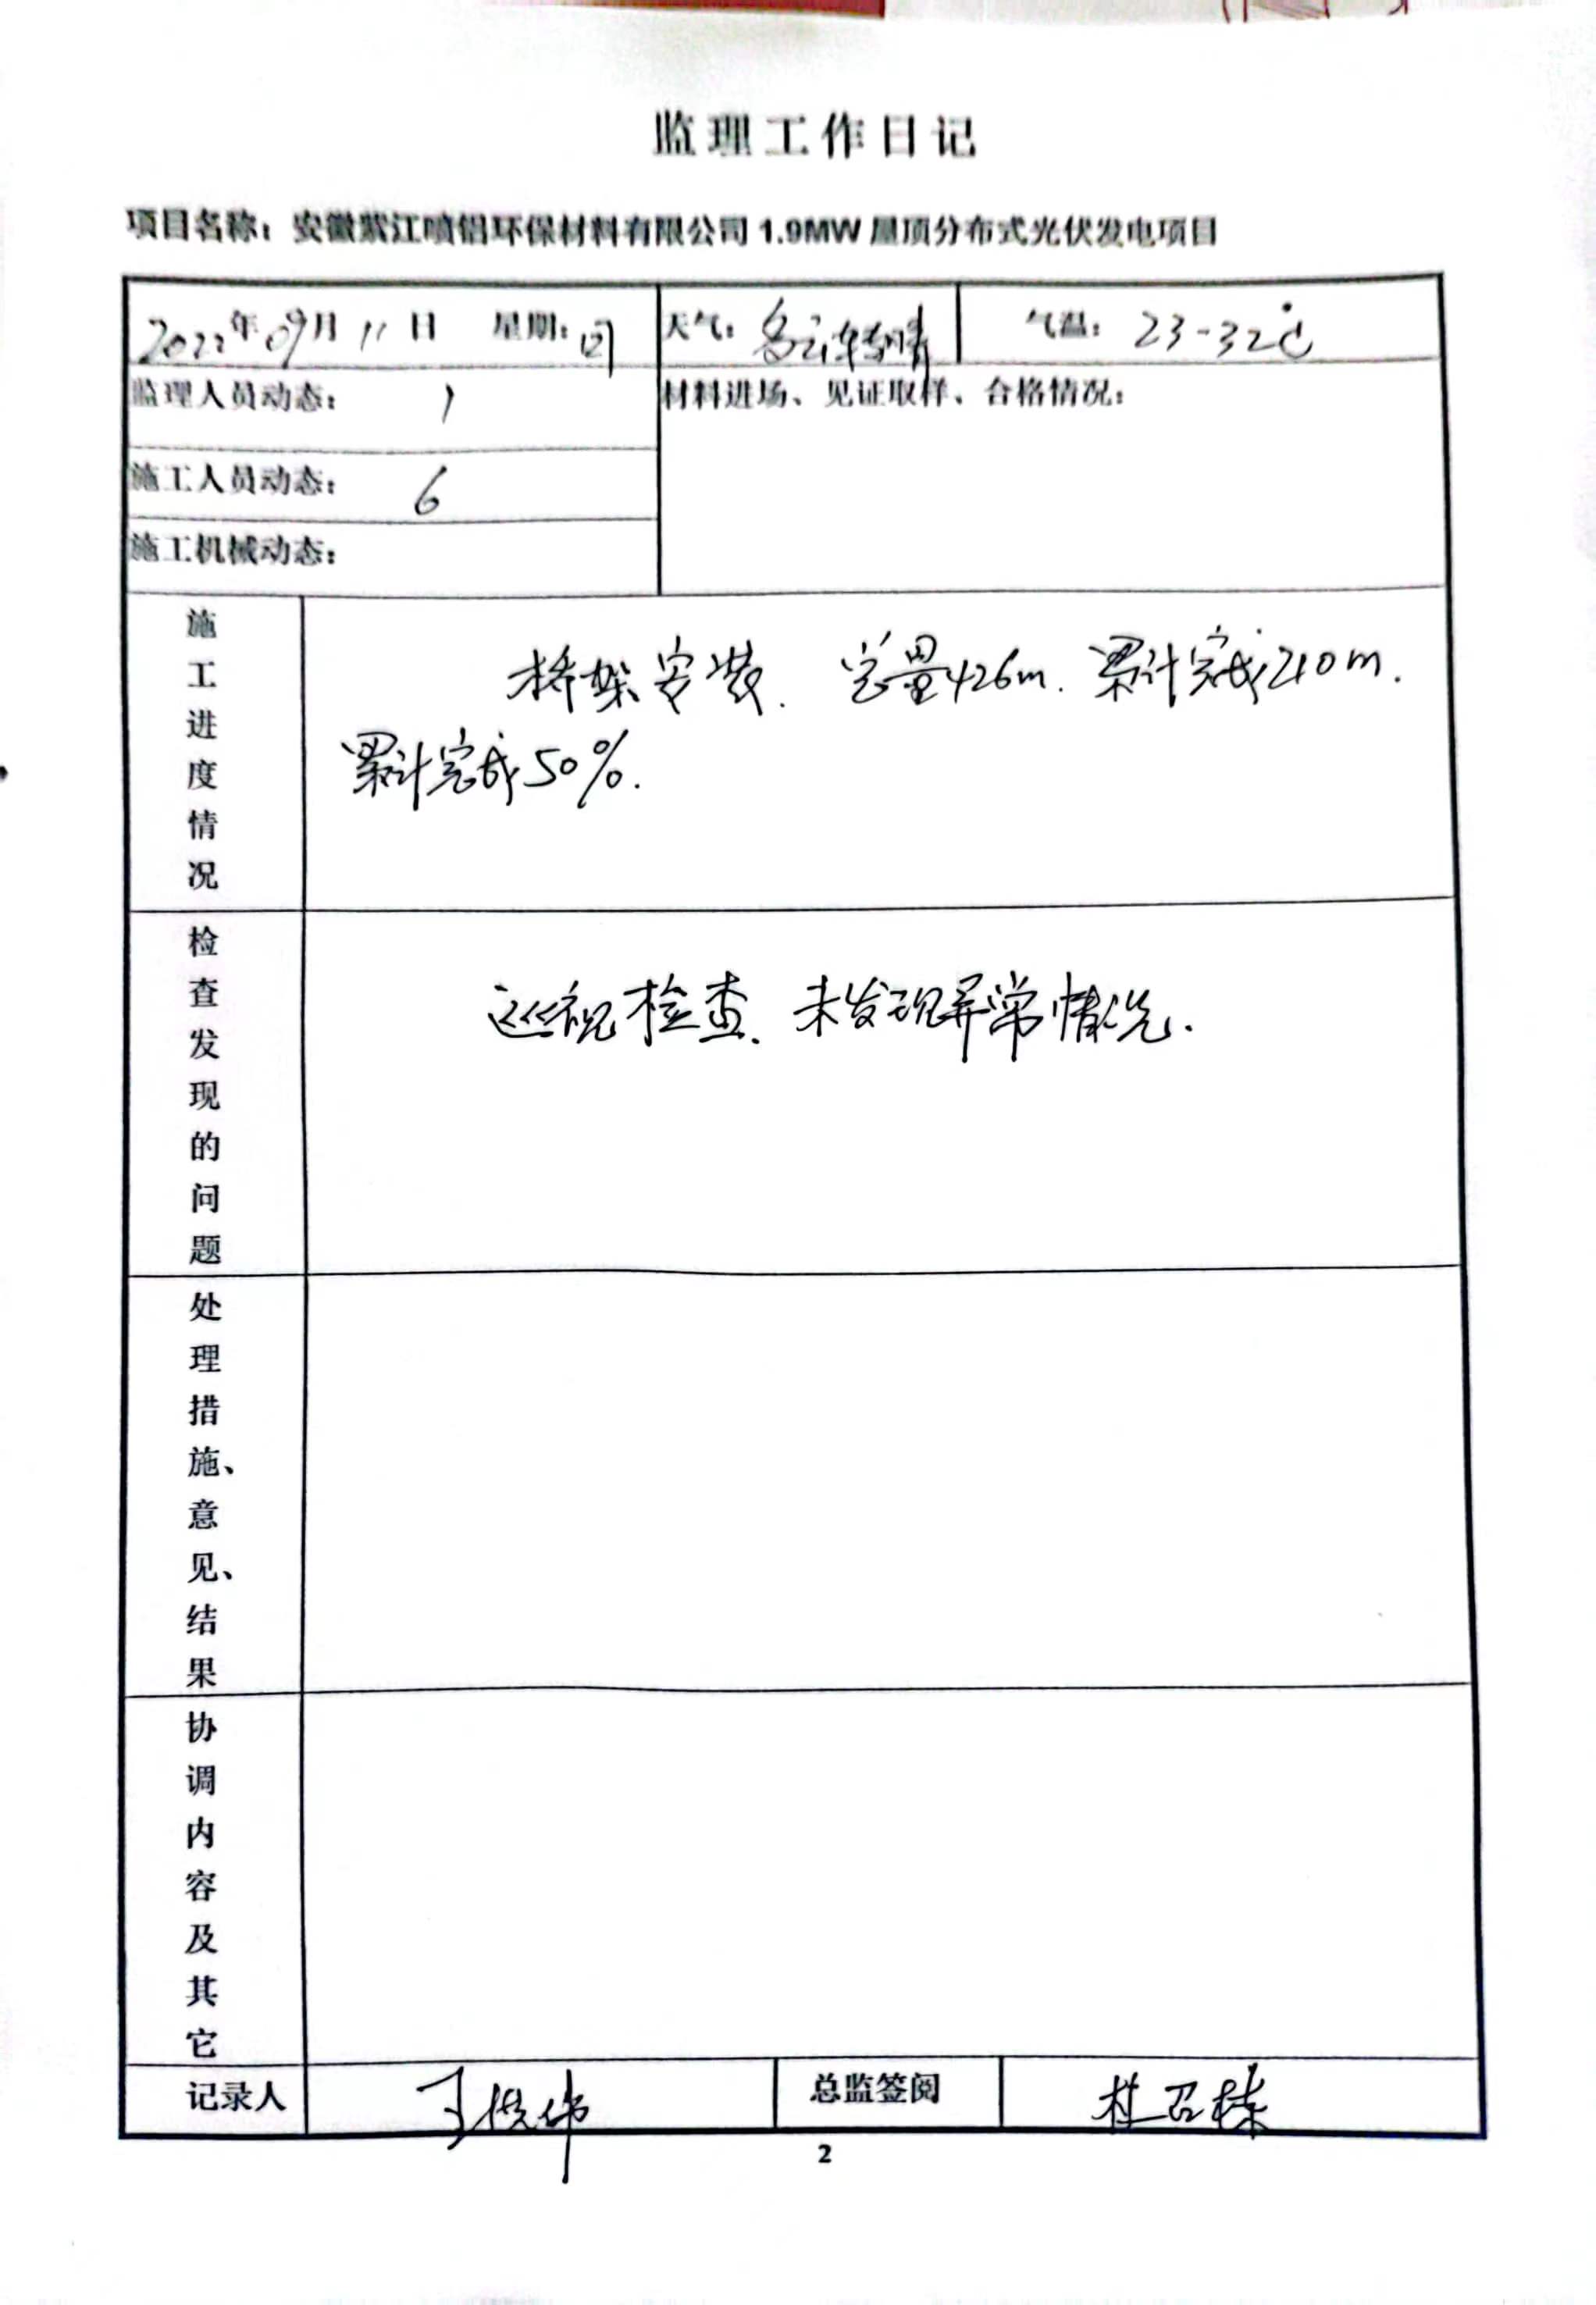 监理工作日记
项目名称：安徽紫江喷铝环保材料有限公司1.9MW屋顶分布式光伏发电项目
2022年09月11日 星期： 天气：多云转晴 气温：23-32℃
监理人员动态： 1
材料进场、见证取样、合格情况：
施工人员动态： 6
施工机械动态：
施工进度情况
桥架安装. 总量426m. 累计完成210m.
累计完成50%.
检查发现的问题
巡视检查、未发现异常情况.
处理措施、意见、结果
协调内容及其它
记录人 王 伟 总监签阅 杜召栋
2